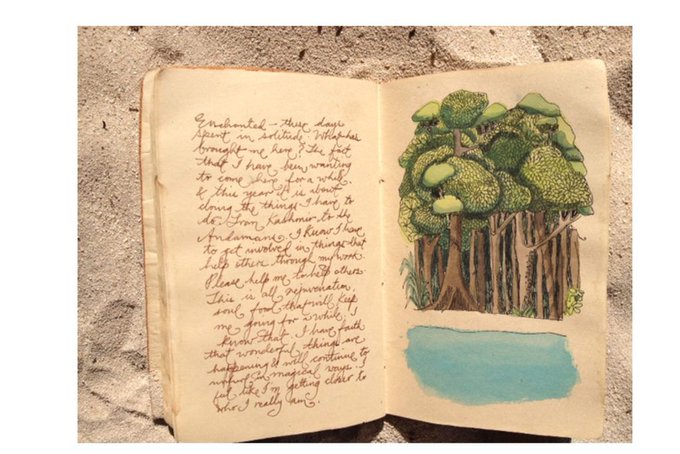 Enchanted – these days
spent in solitude. What has
brought me here? The fact
that I have been wanting
to come here for a while.
& this year it is about
doing the things I have to
do. From Kashmir to the
Andamans. I know I have
to get involved in things that
help others through my work.
Please help me to help others.
This is all rejuvenation,
soul food that will keep
me going for a while. I
know that. I have faith
that wonderful things are
happening & will continue to
unfold in magical ways. I
feel like I'm getting closer to
who I really am.